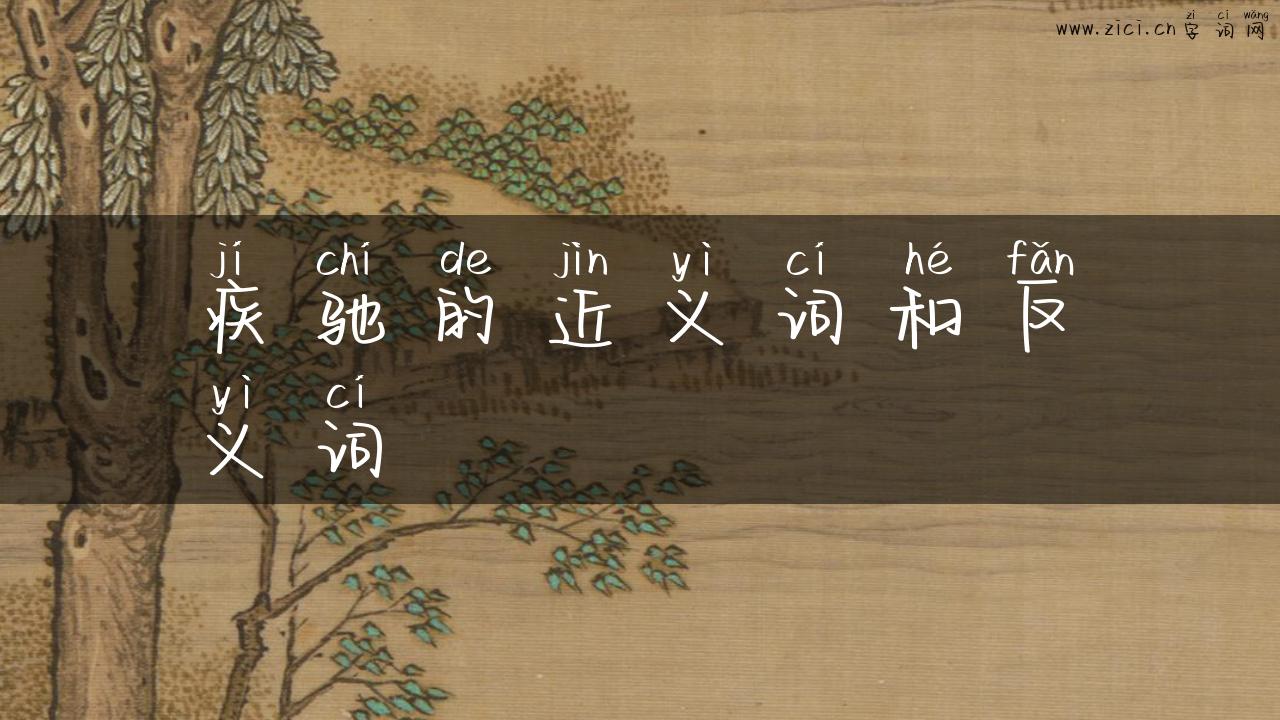 zì cí wǎng
www.zici.cn 字词网
jí chí de jìn yì cí hé fǎn
疾驰的近义词和反
yì cí
义词